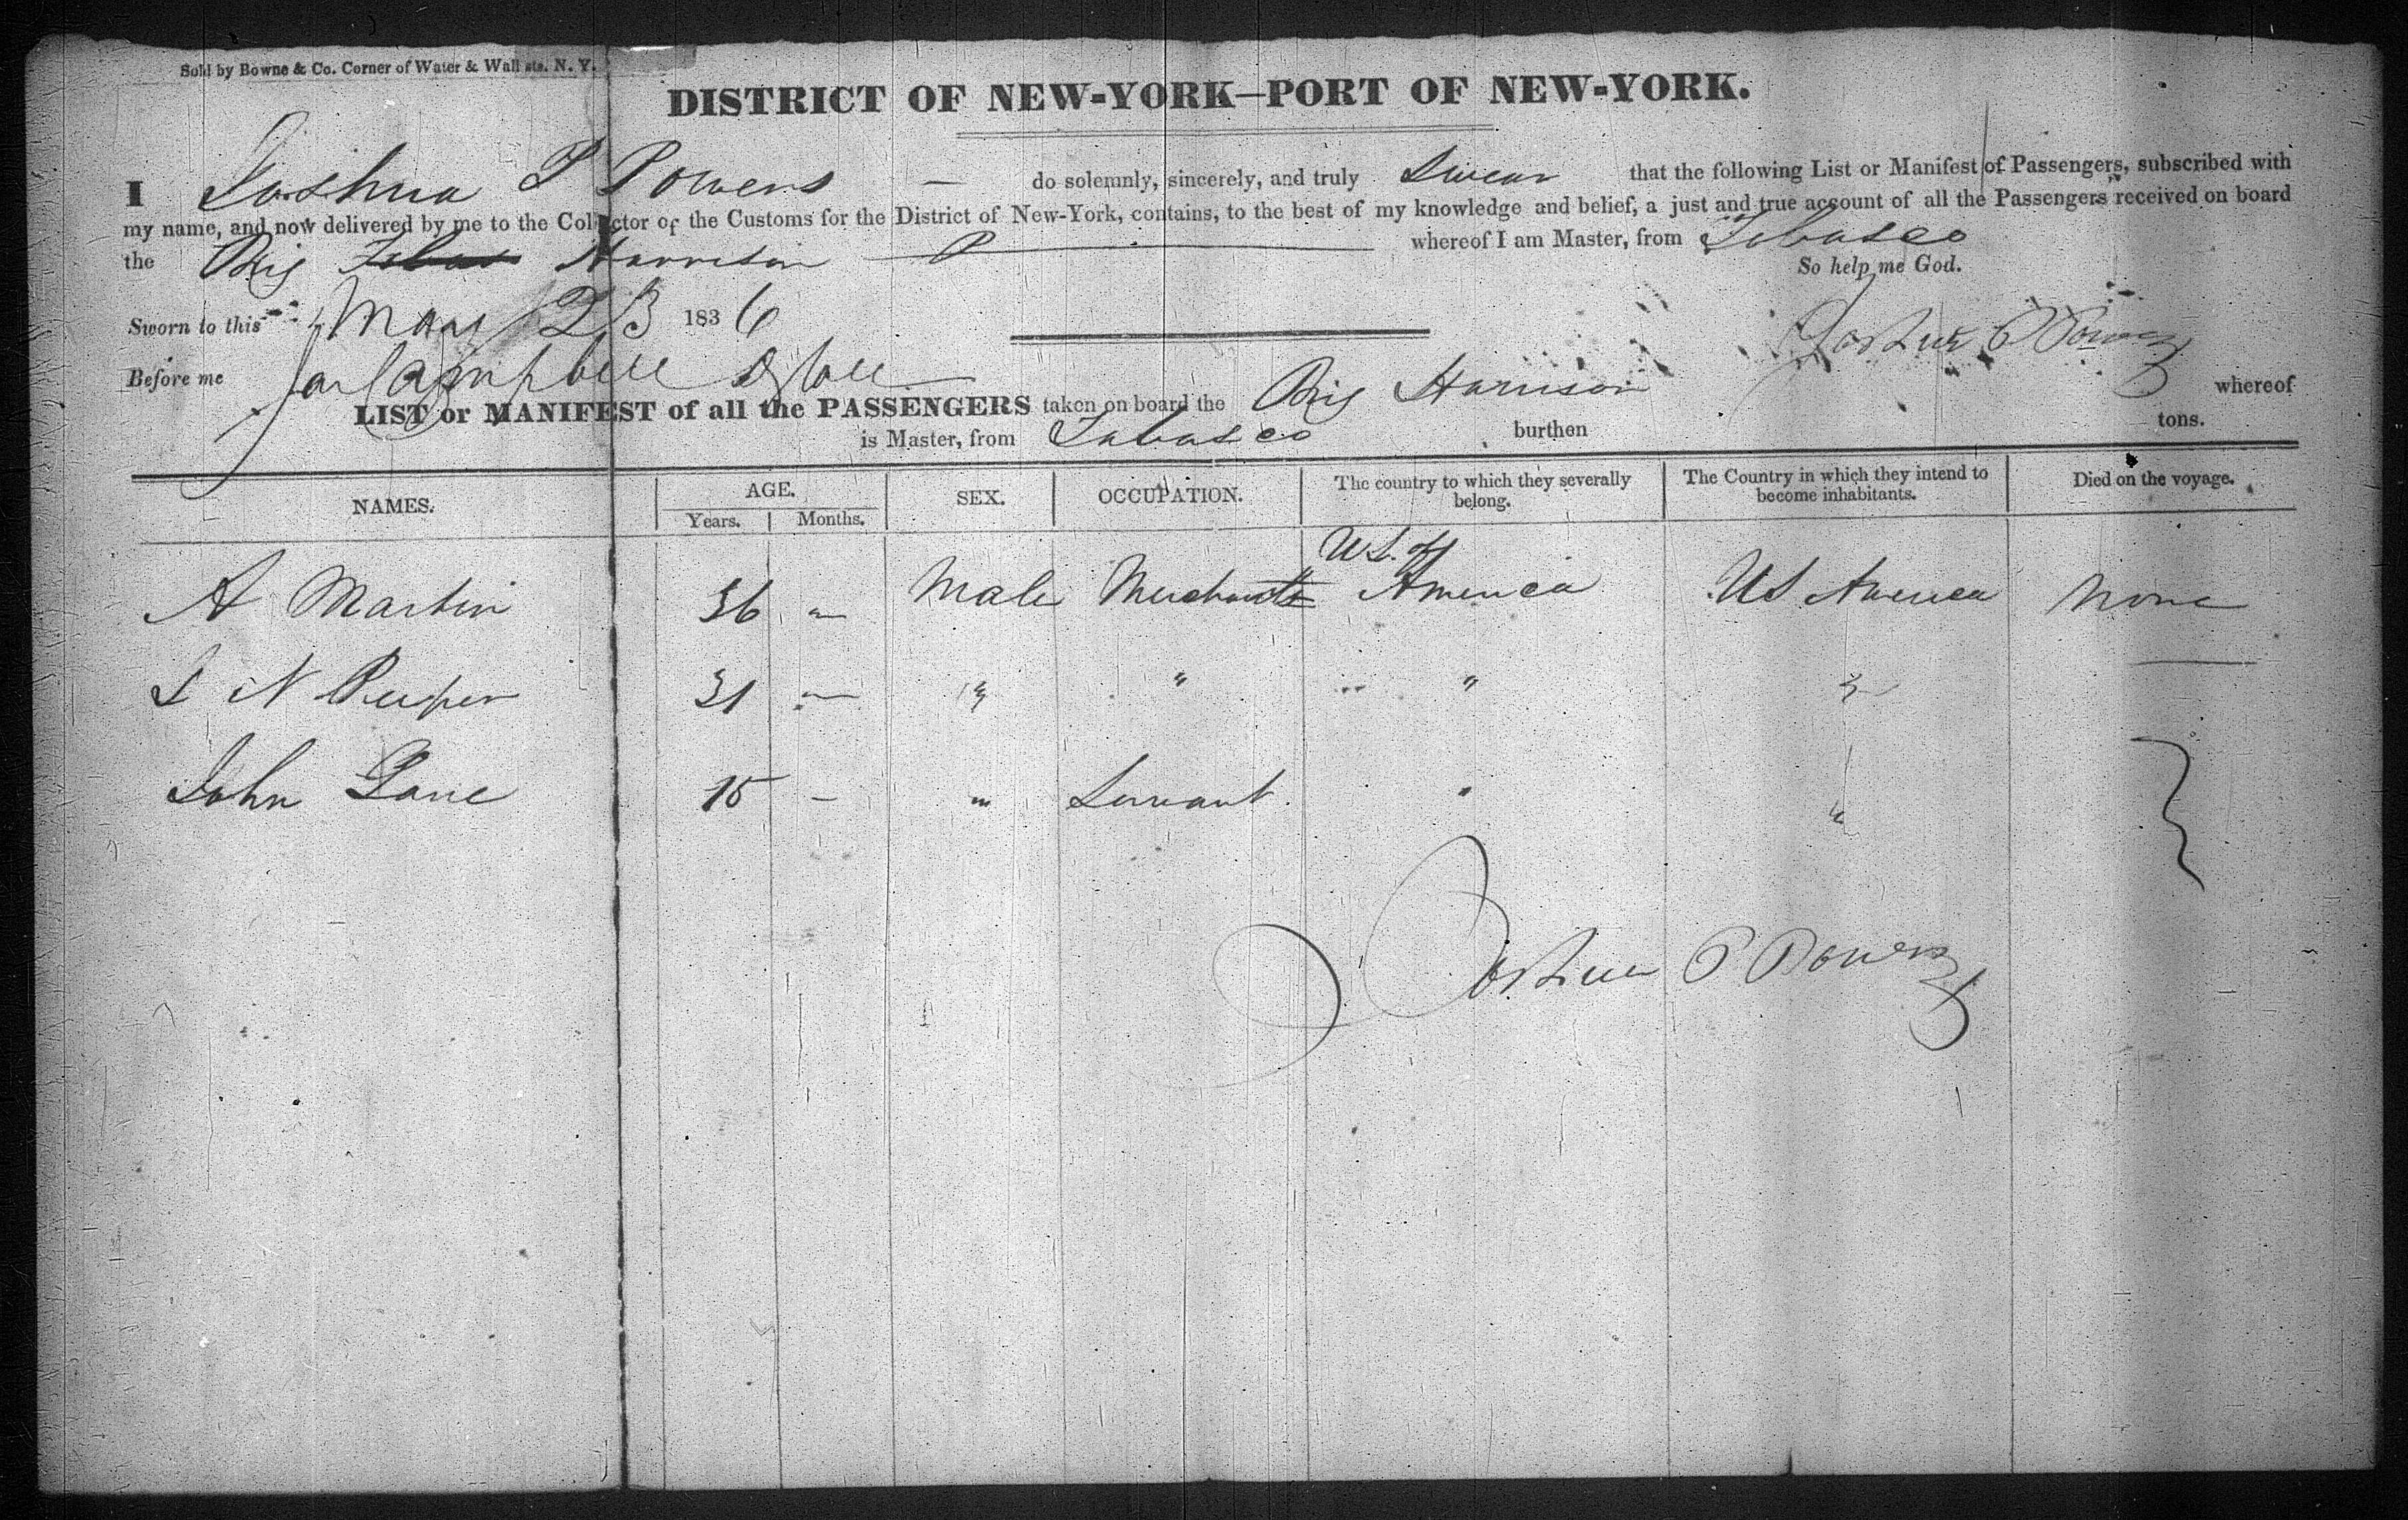 Sold by Bowne & Co. Corner of Water & Wall sts. N. Y.
DISTRICT OF NEW-YORK—PORT OF NEW-YORK.
I Joshua P Powers — do solemnly, sincerely, and truly Swear that the following List or Manifest of Passengers, subscribed with
my name, and now delivered by me to the Collector of the Customs for the District of New-York, contains, to the best of my knowledge and belief, a just and true account of all the Passengers received on board
the Brig Harrison whereof I am Master, from Tobasco
So help me God.
Sworn to this May 23 1836
Joshua P Powers
Before me Campbell
LIST or MANIFEST of all the PASSENGERS taken on board the Brig Harrison whereof
is Master, from Tabasco burthen tons.
NAMES. AGE. SEX. OCCUPATION. The country to which they severally belong. The Country in which they intend to become inhabitants. Died on the voyage.
Years. Months.
A Martin 36 — Male Merchants U S. of America US America None
N 31 — " " " "
John Lane 15 - " Servant. " "
Joshua P Powers